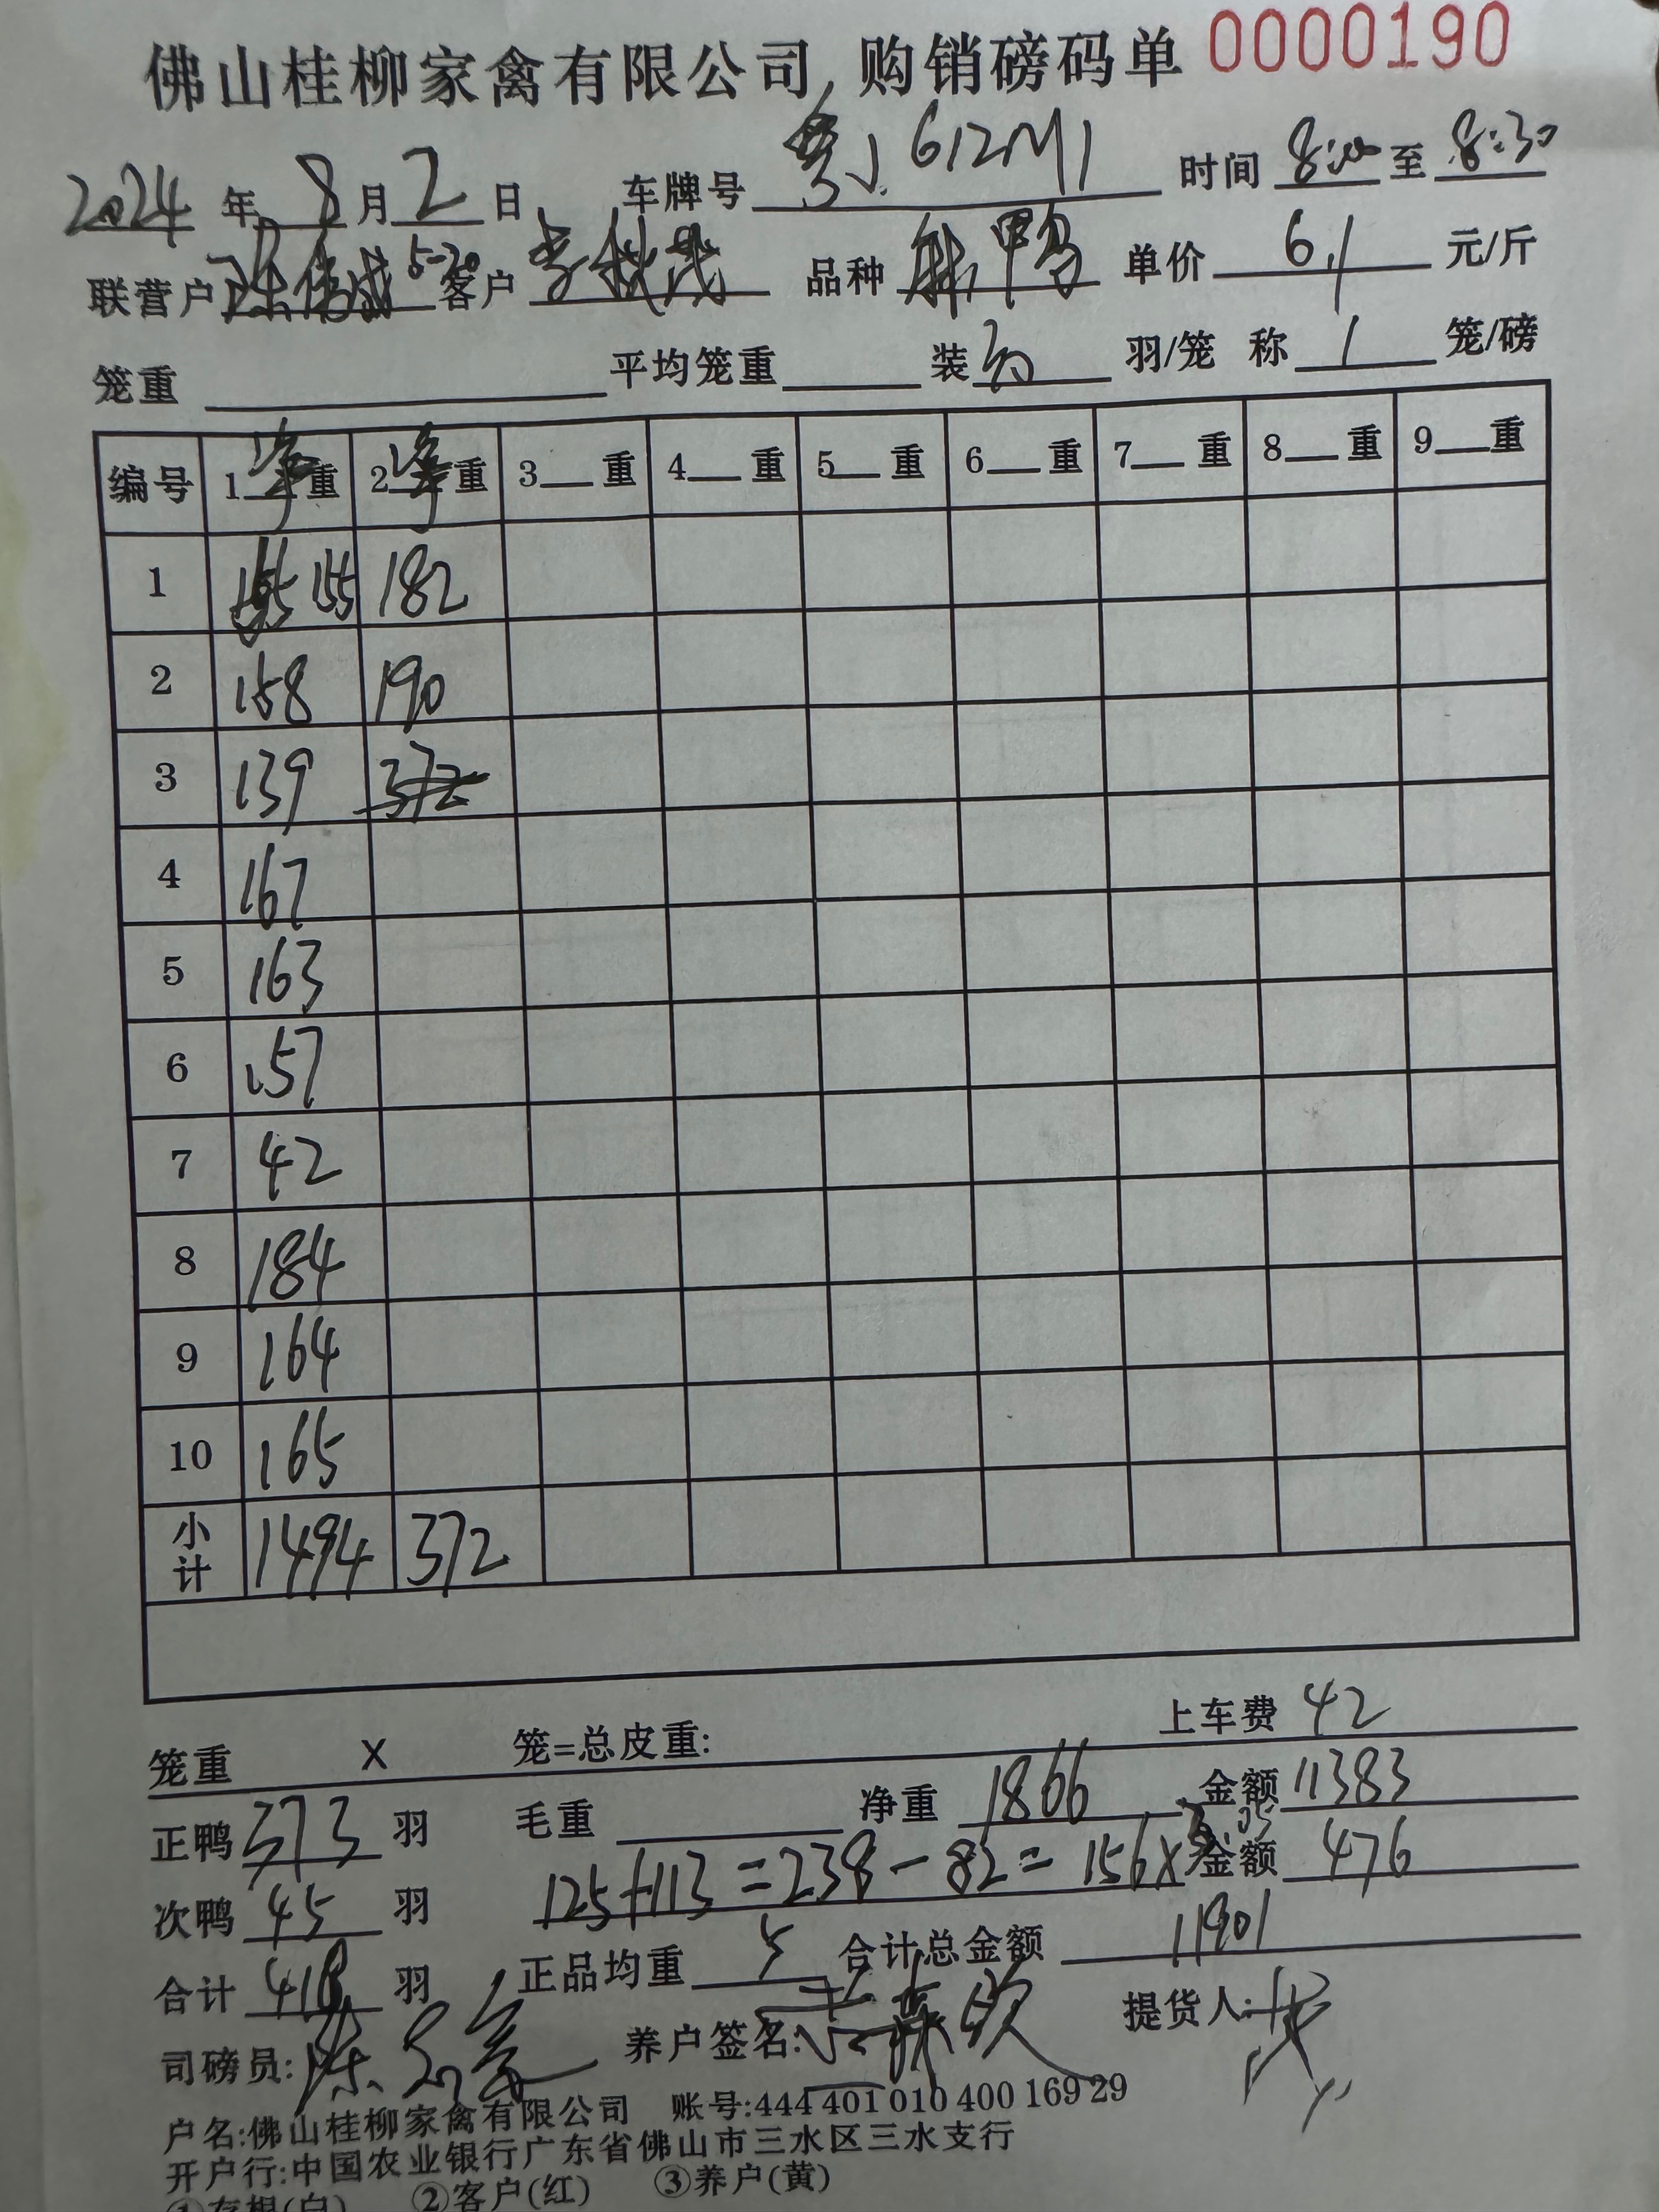 佛山桂柳家禽有限公司 购销磅码单 0000190
2024 年 8 月 2 日 车牌号 粤J.612M1 时间 8:00 至 8:30
联营户 陈伟成 5-20 客户 李秋茂 品种 鸭 单价 6.1 元/斤
笼重 平均笼重 装 羽/笼 称 1 笼/磅
编号 1净重 2净重 3__重 4__重 5__重 6__重 7__重 8__重 9__重
1 155 182
2 158 190
3 139 372
4 167
5 163
6 157
7 42
8 184
9 164
10 165
小计 1494 372
笼重 X 笼=总皮重: 上车费 42
正鸭 373 羽 毛重 净重 1866 金额 11383
次鸭 45 羽 125+113=238-82=156×3.05 金额 476
合计 418 羽 正品均重 5 合计总金额 11901
司磅员: 陈 养户签名: 提货人:
户名:佛山桂柳家禽有限公司 账号:444 401 010 400 169 29
开户行:中国农业银行广东省佛山市三水区三水支行
①存根(白) ②客户(红) ③养户(黄)